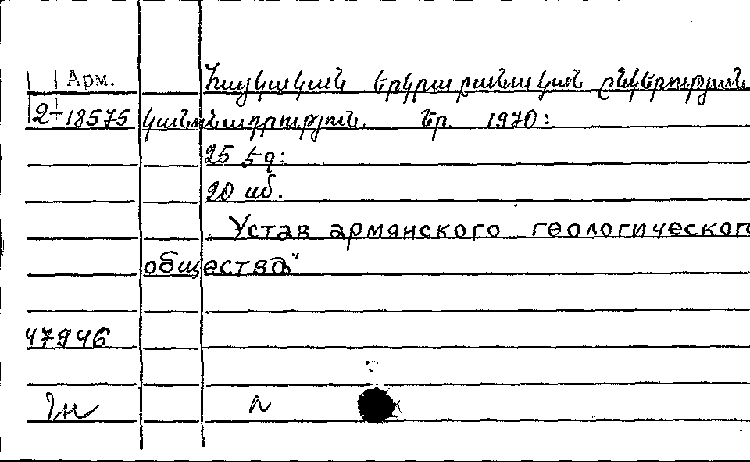 Арм. Հայկական երկրաբանական ընկերության
2-18575 կանոնադրություն. Եր. 1970:
25 էջ:
20 սմ.
Устав армянского геологического
общества"
47946